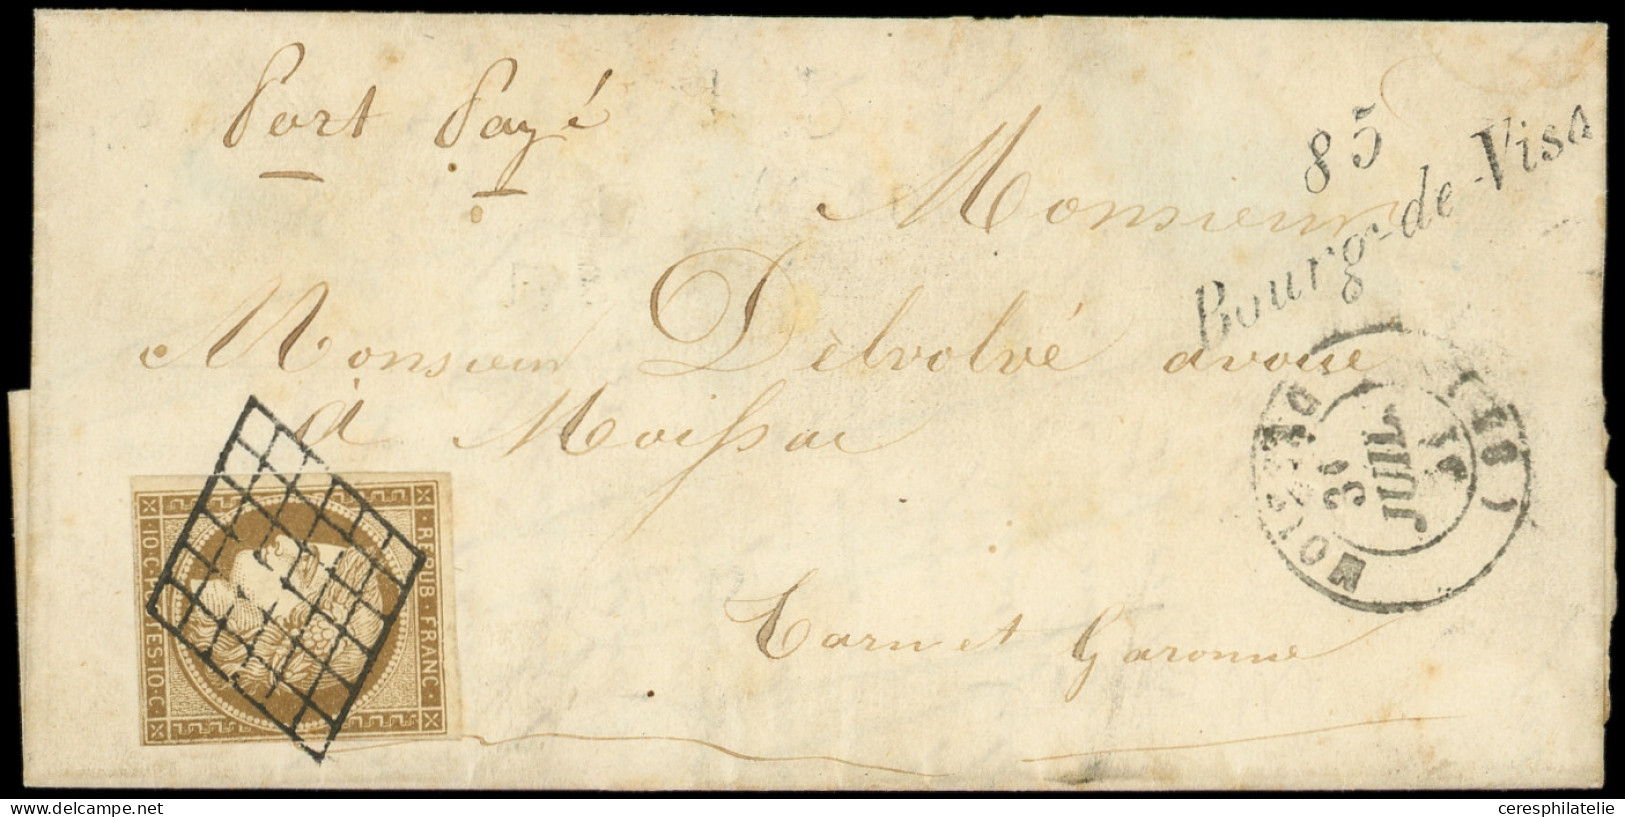 Port Payé
85
Bourg-de-Visa
Monsieur
Monsieur Delvolvé avoué
à Moissac
Tarn et Garonne
30
JUIL
51
REPUB · FRANC ·
10 · C · POSTES · 10 · C ·
www.delcampe.net
ceresphilatelie